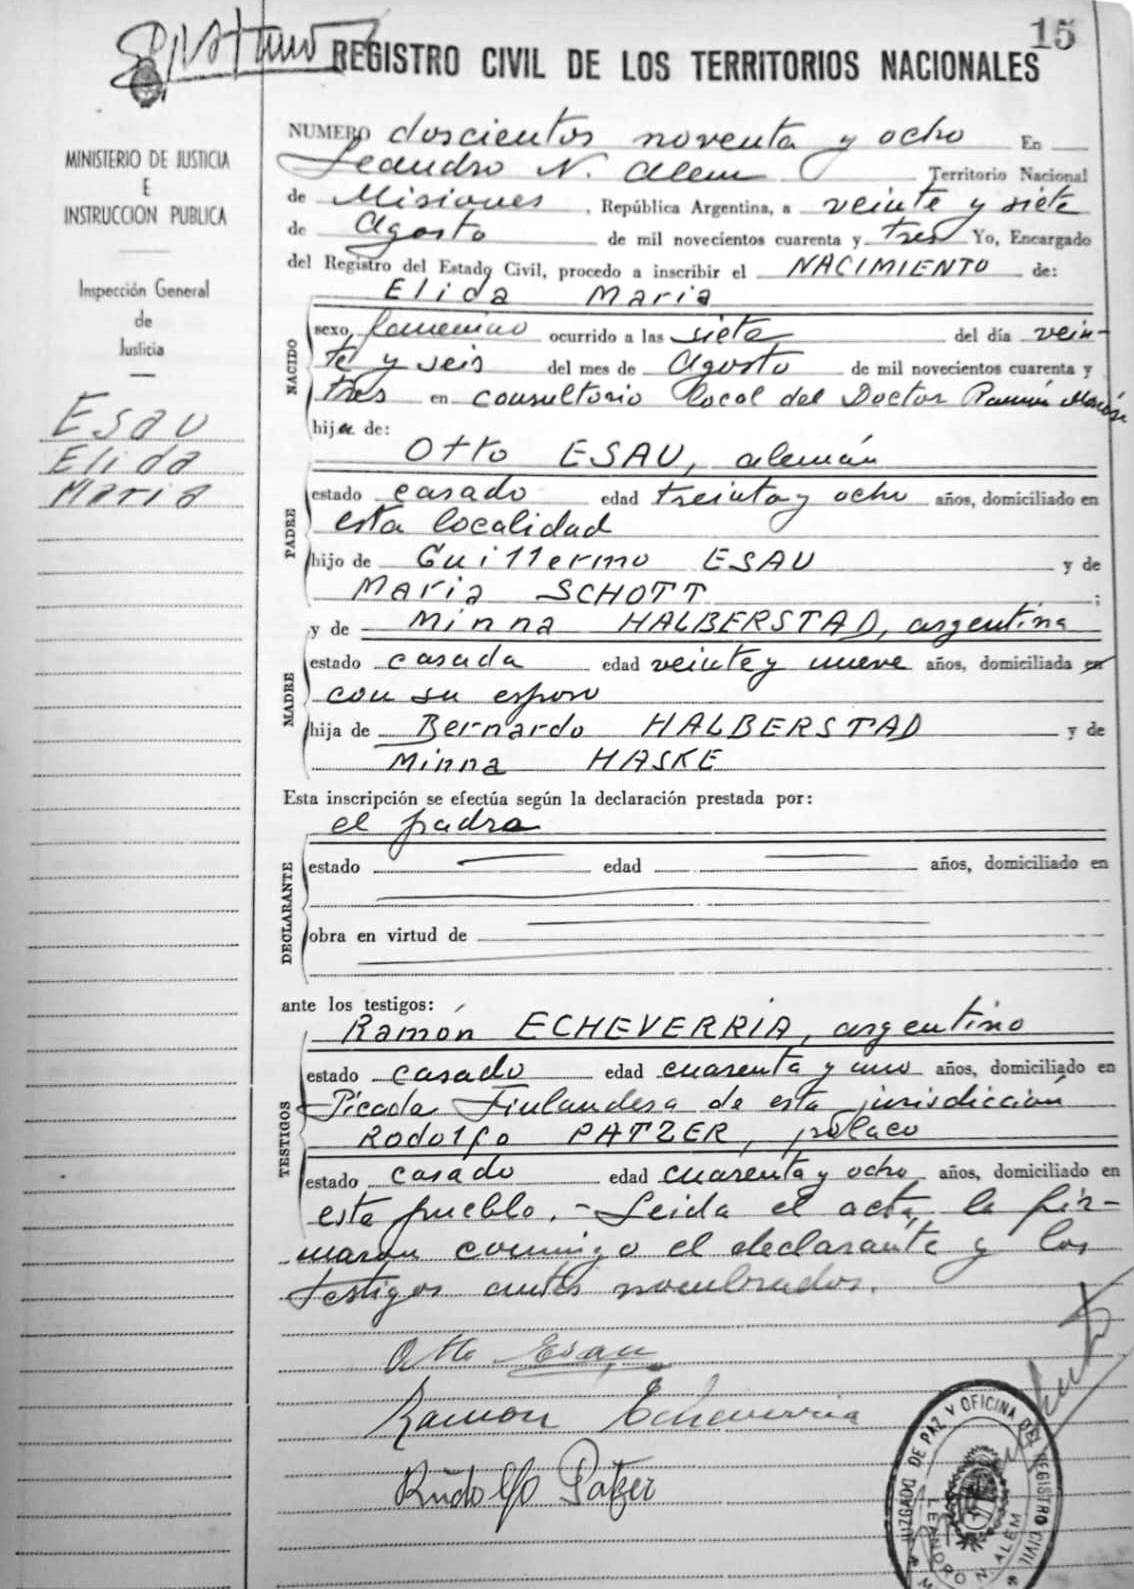 15
REGISTRO CIVIL DE LOS TERRITORIOS NACIONALES
MINISTERIO DE JUSTICIA
E
INSTRUCCION PUBLICA
Inspección General
de
Justicia
Esau
Elida
Maria
NUMERO doscientos noventa y ocho En
Leandro N. Alem Territorio Nacional
de Misiones, República Argentina, a veinte y siete
de Agosto de mil novecientos cuarenta y tres Yo, Encargado
del Registro del Estado Civil, procedo a inscribir el NACIMIENTO de:
Elida Maria
NACIDO
sexo femenino ocurrido a las siete del día vein-
te y seis del mes de Agosto de mil novecientos cuarenta y
tres en consultorio local del Doctor Ramón
hija de:
Otto ESAU, alemán
PADRE
estado casado edad treinta y ocho años, domiciliado en
esta localidad
hijo de Guillermo ESAU y de
Maria SCHOTT ;
y de Minna HALBERSTAD, argentina
MADRE
estado casada edad veinte y nueve años, domiciliada en
con su esposo
hija de Bernardo HALBERSTAD y de
Minna HASKE
Esta inscripción se efectúa según la declaración prestada por:
el padre
DECLARANTE
estado edad años, domiciliado en
obra en virtud de
ante los testigos:
Ramón ECHEVERRIA, argentino
TESTIGOS
estado casado edad cuarenta y uno años, domiciliado en
Picada Finlandesa de esta jurisdicción
Rodolfo PATZER, polaco
estado casado edad cuarenta y ocho años, domiciliado en
este pueblo.- Leida el acta, la fir-
maron conmigo el declarante y los
testigos antes nombrados.
Otto Esau
Ramon Echeverria
Rudolfo Patzer
JUZGADO DE PAZ Y OFICINA DEL REGISTRO CIVIL
LEANDRO N. ALEM